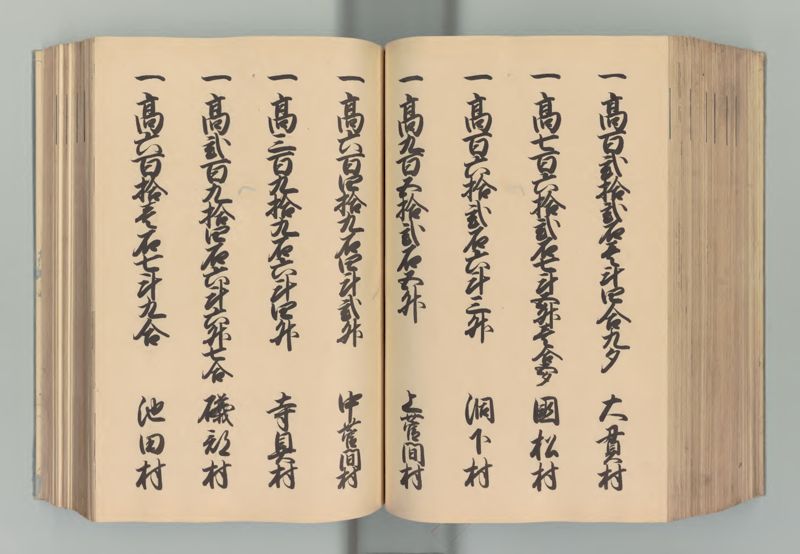 一高百弐拾弐石壱斗四合九夕 大貫村
一高七百六拾弐石七斗五升壱合夕 國松村
一高百六拾弐石六斗三升 洞下村
一高九百五拾弐石五升 上菅間村
一高六百四拾九石四斗弐升 中菅間村
一高三百九拾九石六斗四升 寺具村
一高弐百九拾四石六斗六升七合 磯部村
一高六百拾壱石七斗九合 池田村